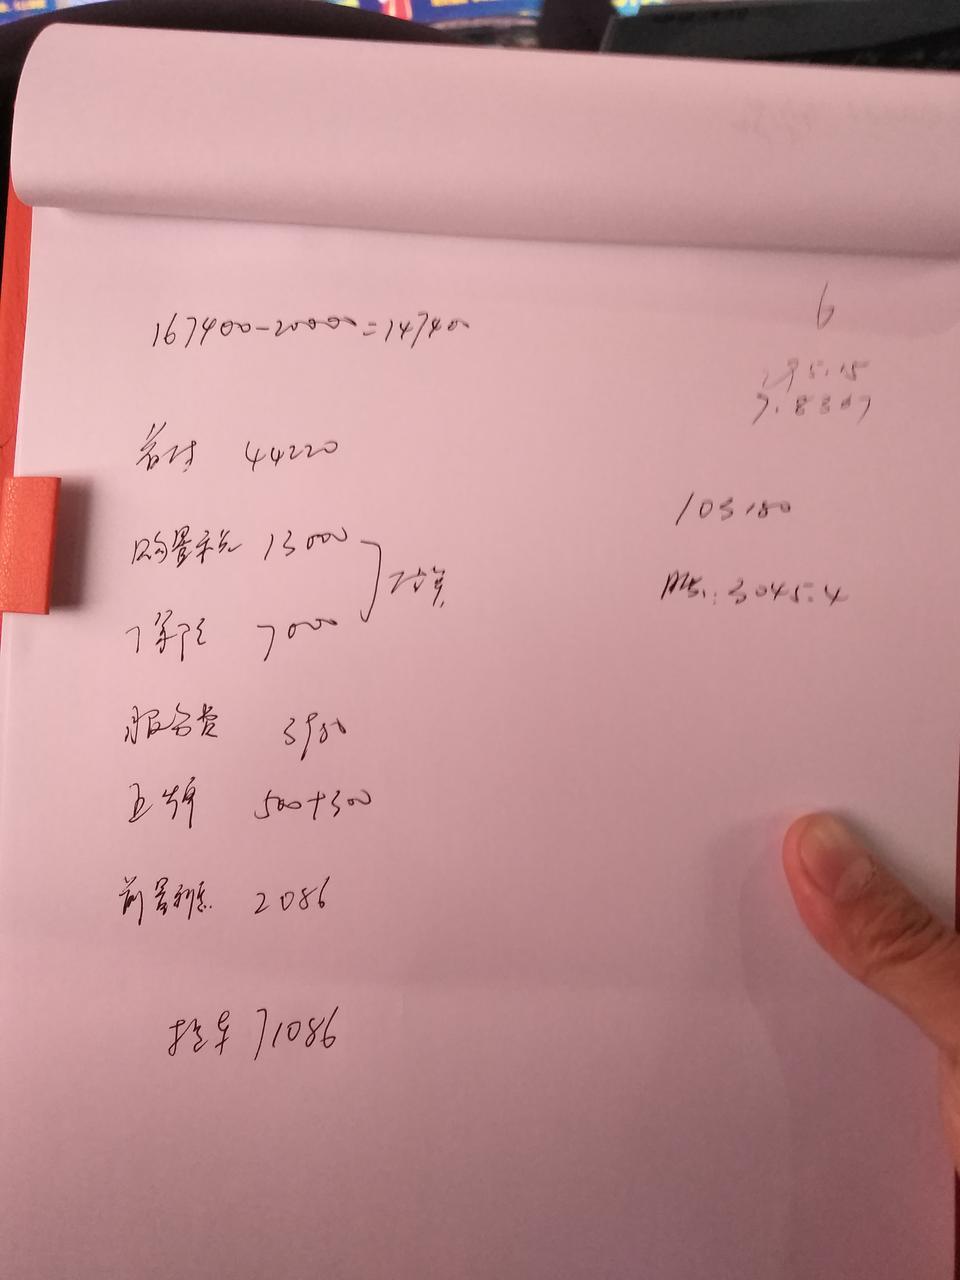 167400-20000=147400
首付 44220
购置税 13000
保险 7000
预算
服务费 3980
上牌 500+300
前置利息 2086
提车 71086
6
5.15
7.8307
103180
月供:3045.4